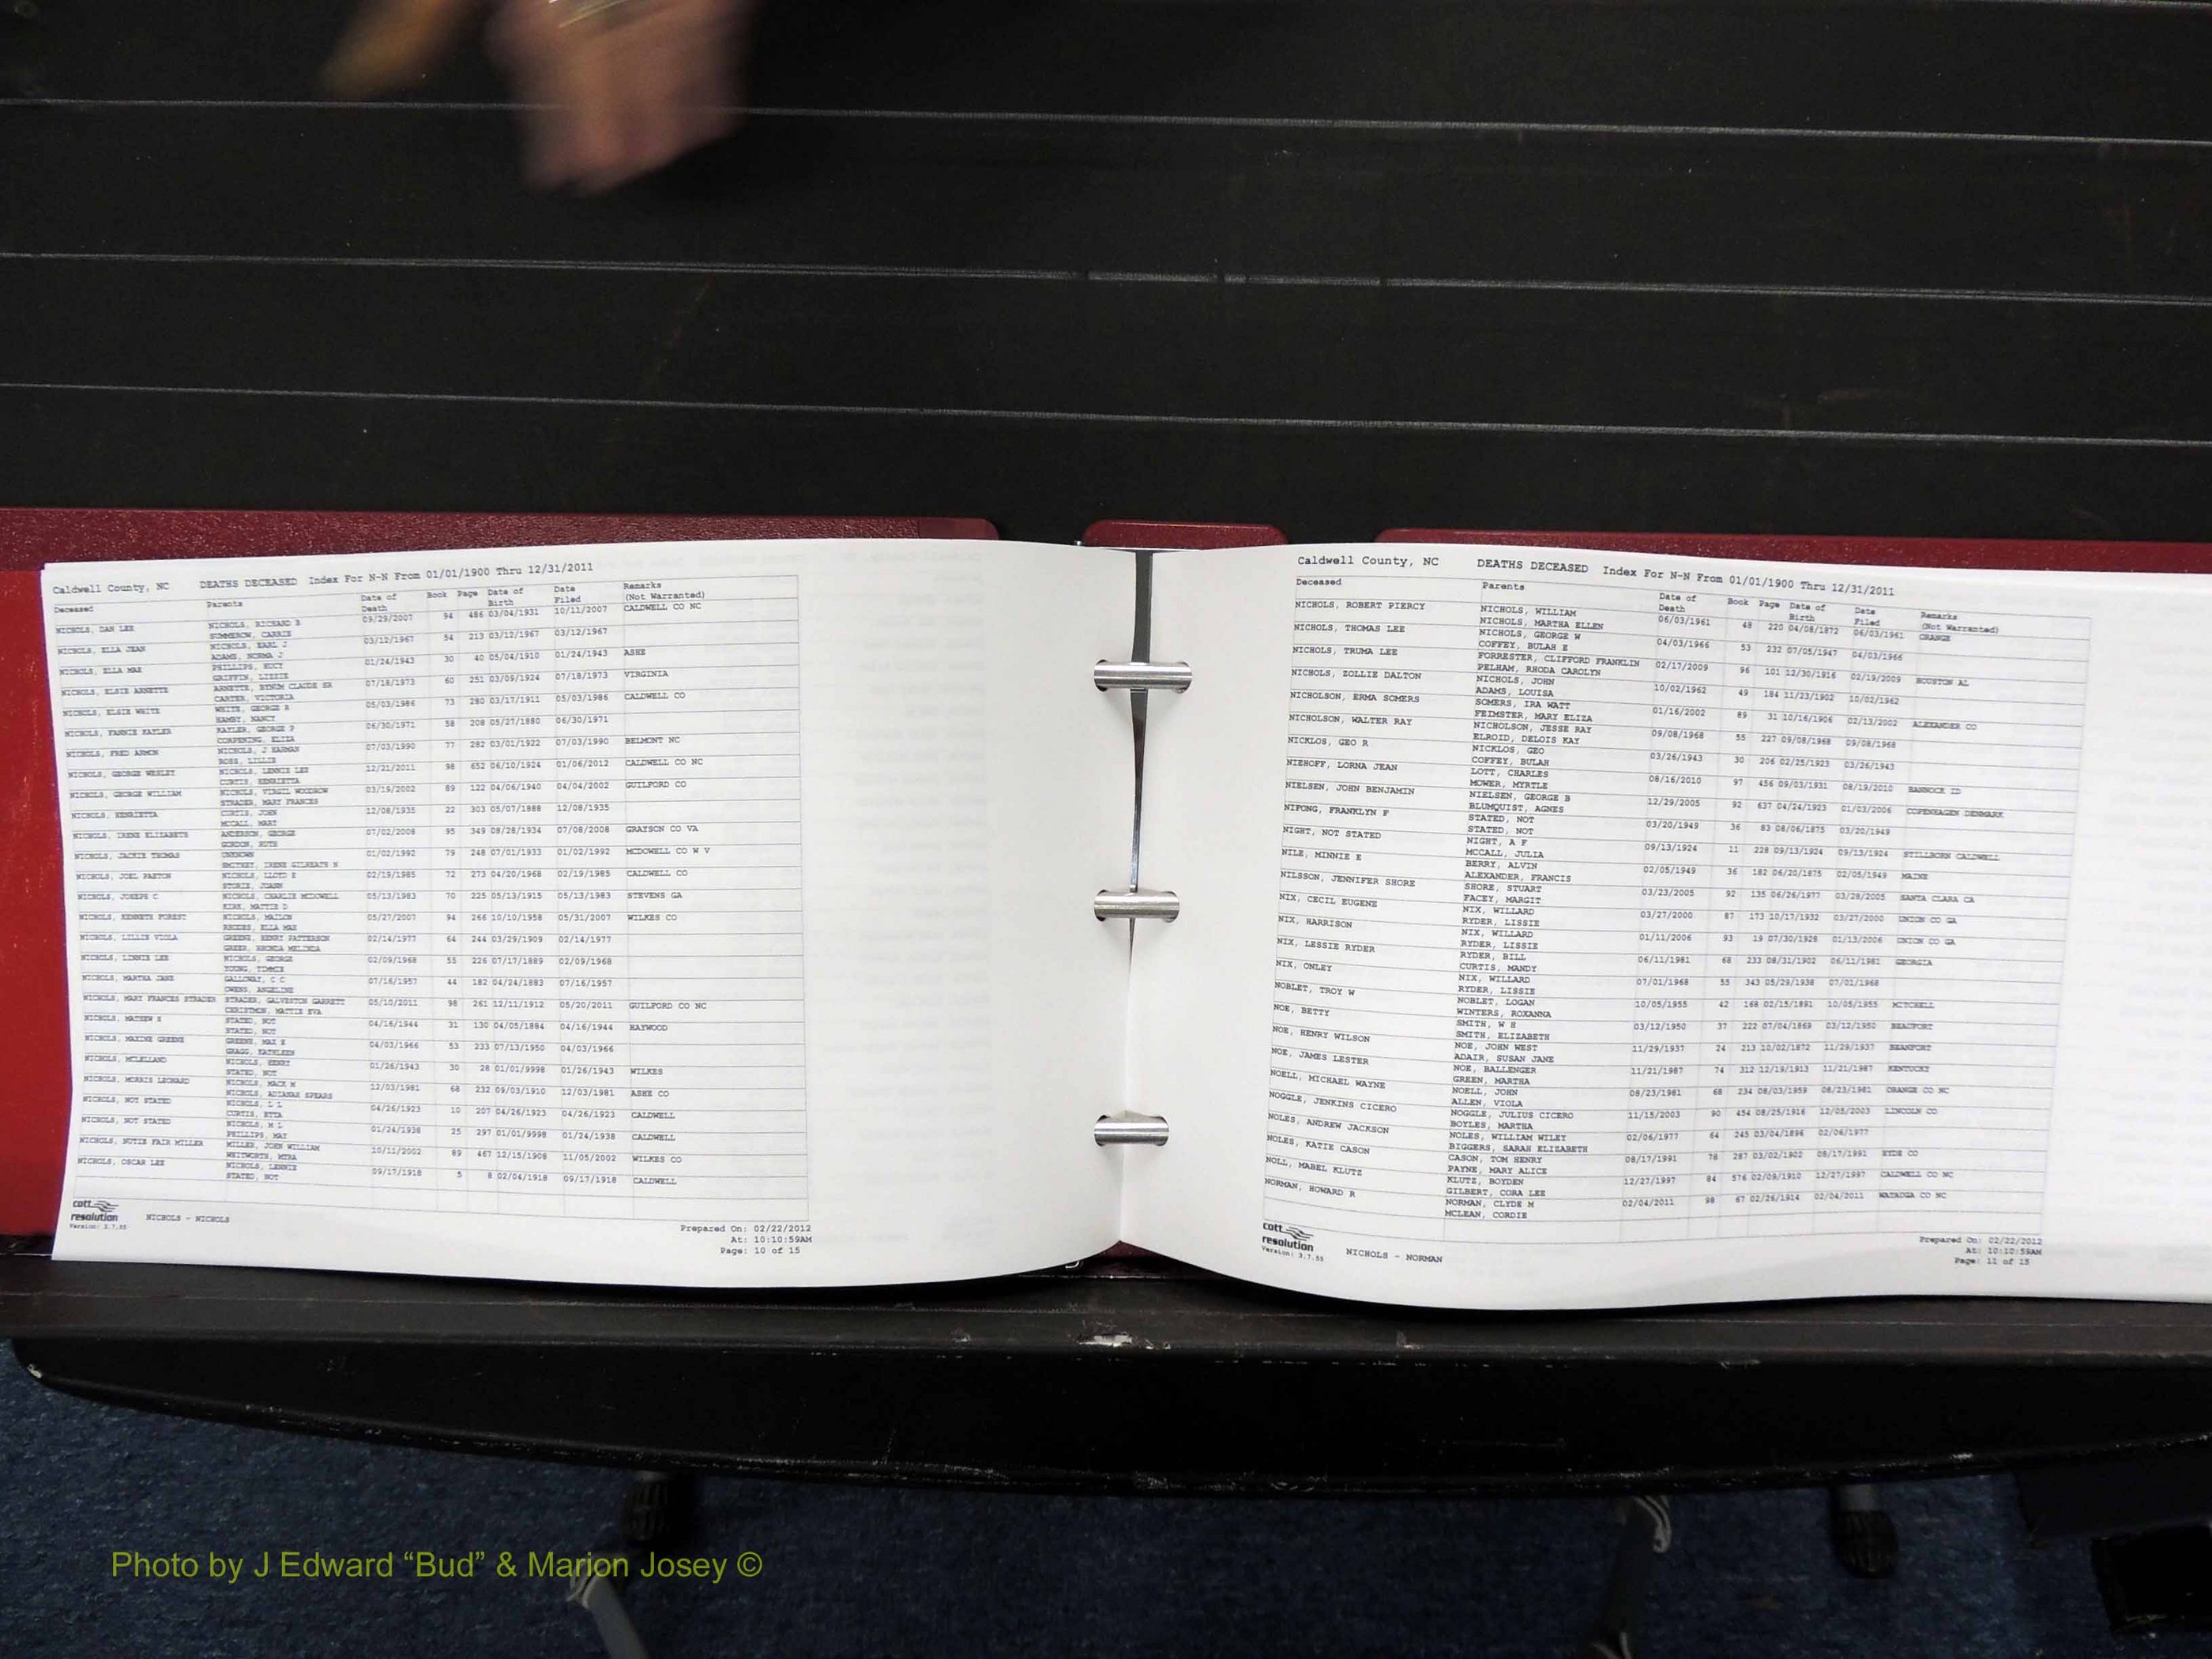 Caldwell County, NC DEATHS DECEASED Index For N-N From 01/01/1900 Thru 12/31/2011
Deceased Parents Date of Death Book Page Date of Birth Date Filed Remarks (Not Warranted)
NICHOLS, DAN LEE NICHOLS, RICHARD B 09/29/2007 94 486 03/04/1931 10/11/2007 CALDWELL CO NC
SUMMEROW, CARRIE
NICHOLS, ELLA JEAN NICHOLS, EARL J 03/12/1967 54 213 03/12/1967 03/12/1967
ADAMS, NORMA J
NICHOLS, ELLA MAE PHILLIPS, HUCY 01/24/1943 30 40 05/04/1910 01/24/1943 ASHE
GRIFFIN, LIZZIE
NICHOLS, ELSIE ARNETTE ARNETTE, BYNUM CLAUDE SR 07/18/1973 60 251 03/09/1924 07/18/1973 VIRGINIA
CARTER, VICTORIA
NICHOLS, ELSIE WHITE WHITE, GEORGE R 05/03/1986 73 280 03/17/1911 05/03/1986 CALDWELL CO
HAMBY, NANCY
NICHOLS, FANNIE KAYLER KAYLER, GEORGE P 06/30/1971 58 208 05/27/1880 06/30/1971
CORPENING, ELIZA
NICHOLS, FRED ARMON NICHOLS, J HARMAN 07/03/1990 77 282 03/01/1922 07/03/1990 BELMONT NC
ROSS, LILLIE
NICHOLS, GEORGE WESLEY NICHOLS, LENNIE LEE 12/21/2011 98 652 06/10/1924 01/06/2012 CALDWELL CO NC
CURTIS, HENRIETTA
NICHOLS, GEORGE WILLIAM NICHOLS, VIRGIL WOODROW 03/19/2002 89 122 04/06/1940 04/04/2002 GUILFORD CO
STRADER, MARY FRANCES
NICHOLS, HENRIETTA CURTIS, JOHN 12/08/1935 22 303 05/07/1888 12/08/1935
MCCALL, MARY
NICHOLS, IRENE ELIZABETH ANDERSON, GEORGE 07/02/2008 95 349 08/28/1934 07/08/2008 GRAYSON CO VA
GORDON, RUTH
NICHOLS, JACKIE THOMAS UNKNOWN 01/02/1992 79 248 07/01/1933 01/02/1992 MCDOWELL CO W V
SMITHEY, IRENE GILREATH N
NICHOLS, JOEL PAXTON NICHOLS, LLOYD E 02/19/1985 72 273 04/20/1968 02/19/1985 CALDWELL CO
STORIE, JOANN
NICHOLS, JOSEPH C NICHOLS, CHARLIE MCDOWELL 05/13/1983 70 225 05/13/1915 05/13/1983 STEVENS GA
KIRK, MATTIE D
NICHOLS, KENNETH FOREST NICHOLS, MAILON 05/27/2007 94 266 10/10/1958 05/31/2007 WILKES CO
RHODES, ELLA MAE
NICHOLS, LILLIE VIOLA GREENE, HENRY PATTERSON 02/14/1977 64 244 03/29/1909 02/14/1977
GREER, RHONDA MELINDA
NICHOLS, LINNIE LEE NICHOLS, GEORGE 02/09/1968 55 226 07/17/1889 02/09/1968
YOUNG, TIMMIE
NICHOLS, MARTHA JANE GALLOWAY, C C 07/16/1957 44 182 04/24/1883 07/16/1957
OWENS, ANGELINE
NICHOLS, MARY FRANCES STRADER STRADER, GALVESTON GARRETT 05/10/2011 98 261 12/11/1912 05/20/2011 GUILFORD CO NC
CHRISTMON, MATTIE EVA
NICHOLS, MATHEW E STATED, NOT 04/16/1944 31 130 04/05/1884 04/16/1944 HAYWOOD
STATED, NOT
NICHOLS, MAXINE GREENE GREENE, MAX E 04/03/1966 53 233 07/13/1950 04/03/1966
GRAGG, KATHLEEN
NICHOLS, MCLELLAND NICHOLS, HENRY 01/26/1943 30 28 01/01/9998 01/26/1943 WILKES
STATED, NOT
NICHOLS, MORRIS LEONARD NICHOLS, MACK M 12/03/1981 68 232 09/03/1910 12/03/1981 ASHE CO
NICHOLS, ADIANAH SPEARS
NICHOLS, NOT STATED NICHOLS, L L 04/26/1923 10 207 04/26/1923 04/26/1923 CALDWELL
CURTIS, ETTA
NICHOLS, NOT STATED NICHOLS, M L 01/24/1938 25 297 01/01/9998 01/24/1938 CALDWELL
PHILLIPS, MAY
NICHOLS, NUTIE FAIR MILLER MILLER, JOHN WILLIAM 10/11/2002 89 467 12/15/1908 11/05/2002 WILKES CO
WHITWORTH, MYRA
NICHOLS, OSCAR LEE NICHOLS, LENNIE 09/17/1918 5 8 02/04/1918 09/17/1918 CALDWELL
STATED, NOT
cott
resolution
Version: 3.7.55
NICHOLS - NICHOLS
Prepared On: 02/22/2012
At: 10:10:59AM
Page: 10 of 15
Caldwell County, NC DEATHS DECEASED Index For N-N From 01/01/1900 Thru 12/31/2011
Deceased Parents Date of Death Book Page Date of Birth Date Filed Remarks (Not Warranted)
NICHOLS, ROBERT PIERCY NICHOLS, WILLIAM 06/03/1961 48 220 04/08/1872 06/03/1961 ORANGE
NICHOLS, MARTHA ELLEN
NICHOLS, THOMAS LEE NICHOLS, GEORGE W 04/03/1966 53 232 07/05/1947 04/03/1966
COFFEY, BULAH E
NICHOLS, TRUMA LEE FORRESTER, CLIFFORD FRANKLIN 02/17/2009 96 101 12/30/1916 02/19/2009 HOUSTON AL
PELHAM, RHODA CAROLYN
NICHOLS, ZOLLIE DALTON NICHOLS, JOHN 10/02/1962 49 184 11/23/1902 10/02/1962
ADAMS, LOUISA
NICHOLSON, ERMA SOMERS SOMERS, IRA WATT 01/16/2002 89 31 10/16/1906 02/13/2002 ALEXANDER CO
FEIMSTER, MARY ELIZA
NICHOLSON, WALTER RAY NICHOLSON, JESSE RAY 09/08/1968 55 227 09/08/1968 09/08/1968
ELROID, DELOIS KAY
NICKLOS, GEO R NICKLOS, GEO 03/26/1943 30 206 02/25/1923 03/26/1943
COFFEY, BULAH
NIEHOFF, LORNA JEAN LOTT, CHARLES 08/16/2010 97 456 09/03/1931 08/19/2010 BANNOCK ID
MOWER, MYRTLE
NIELSEN, JOHN BENJAMIN NIELSEN, GEORGE B 12/29/2005 92 637 04/24/1923 01/03/2006 COPENHAGEN DENMARK
BLUMQUIST, AGNES
NIFONG, FRANKLYN F STATED, NOT 03/20/1949 36 83 08/06/1875 03/20/1949
STATED, NOT
NIGHT, NOT STATED NIGHT, A F 09/13/1924 11 228 09/13/1924 09/13/1924 STILLBORN CALDWELL
MCCALL, JULIA
NILE, MINNIE E BERRY, ALVIN 02/05/1949 36 182 06/20/1875 02/05/1949 MAINE
ALEXANDER, FRANCIS
NILSSON, JENNIFER SHORE SHORE, STUART 03/23/2005 92 135 06/26/1977 03/28/2005 SANTA CLARA CA
FACEY, MARGIT
NIX, CECIL EUGENE NIX, WILLARD 03/27/2000 87 173 10/17/1932 03/27/2000 UNION CO GA
RYDER, LISSIE
NIX, HARRISON NIX, WILLARD 01/11/2006 93 19 07/30/1928 01/13/2006 UNION CO GA
RYDER, LISSIE
NIX, LESSIE RYDER RYDER, BILL 06/11/1981 68 233 08/31/1902 06/11/1981 GEORGIA
CURTIS, MANDY
NIX, ONLEY NIX, WILLARD 07/01/1968 55 343 05/29/1938 07/01/1968
RYDER, LISSIE
NOBLET, TROY W NOBLET, LOGAN 10/05/1955 42 168 02/15/1891 10/05/1955 MITCHELL
WINTERS, ROXANNA
NOE, BETTY SMITH, W H 03/12/1950 37 222 07/04/1869 03/12/1950 BEAUFORT
SMITH, ELIZABETH
NOE, HENRY WILSON NOE, JOHN WEST 11/29/1937 24 213 10/02/1872 11/29/1937 BEANFORT
ADAIR, SUSAN JANE
NOE, JAMES LESTER NOE, BALLENGER 11/21/1987 74 312 12/19/1913 11/21/1987 KENTUCKY
GREEN, MARTHA
NOELL, MICHAEL WAYNE NOELL, JOHN 08/23/1981 68 234 08/03/1959 08/23/1981 ORANGE CO NC
ALLEN, VIOLA
NOGGLE, JENKINS CICERO NOGGLE, JULIUS CICERO 11/15/2003 90 454 08/25/1916 12/05/2003 LINCOLN CO
BOYLES, MARTHA
NOLES, ANDREW JACKSON NOLES, WILLIAM WILEY 02/06/1977 64 245 03/04/1896 02/06/1977
BIGGERS, SARAH ELIZABETH
NOLES, KATIE CASON CASON, TOM HENRY 08/17/1991 78 287 03/02/1902 08/17/1991 HYDE CO
PAYNE, MARY ALICE
NOLL, MABEL KLUTZ KLUTZ, BOYDEN 12/27/1997 84 576 02/09/1910 12/27/1997 CALDWELL CO NC
GILBERT, CORA LEE
NORMAN, HOWARD R NORMAN, CLYDE M 02/04/2011 98 67 02/26/1914 02/04/2011 WATAUGA CO NC
MCLEAN, CORDIE
cott
resolution
Version: 3.7.55
NICHOLS - NORMAN
Prepared On: 02/22/2012
At: 10:10:59AM
Page: 11 of 15
Photo by J Edward “Bud” & Marion Josey ©